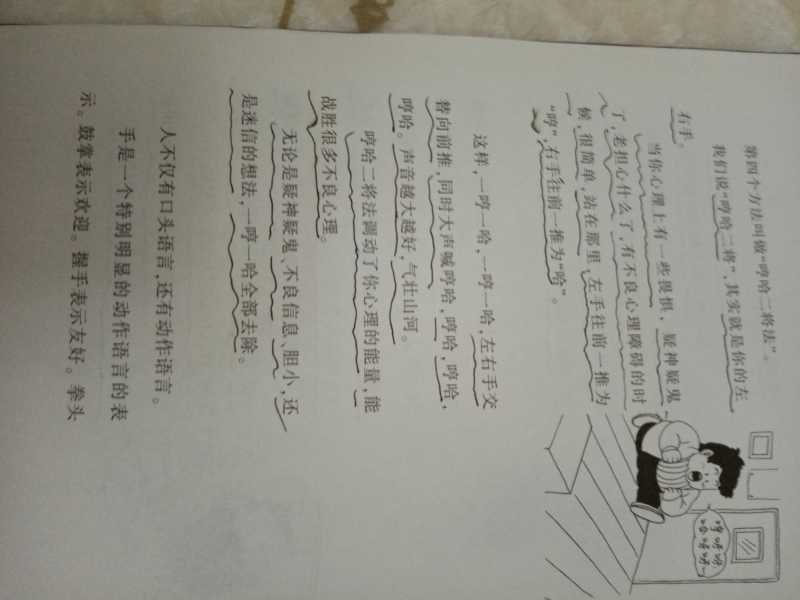 第四个方法叫做“哼哈二将法”。
我们说“哼哈二将”，其实就是你的左
右手。
当你心理上有一些畏惧，疑神疑鬼
了，老担心什么了，有不良心理障碍的时
候，很简单，站在那里，左手往前一推为
“哼”，右手往前一推为“哈”。
这样，一哼一哈，一哼一哈，左右手交
替向前推，同时大声喊哼哈，哼哈，哼哈，
哼哈。声音越大越好，气壮山河。
哼哈二将法调动了你心理的能量，能
战胜很多不良心理。
无论是疑神疑鬼、不良信息、胆小，还
是迷信的想法，一哼一哈全部去除。
人不仅有口头语言，还有动作语言。
手是一个特别明显的动作语言的表
示。鼓掌表示欢迎。握手表示友好。拳头